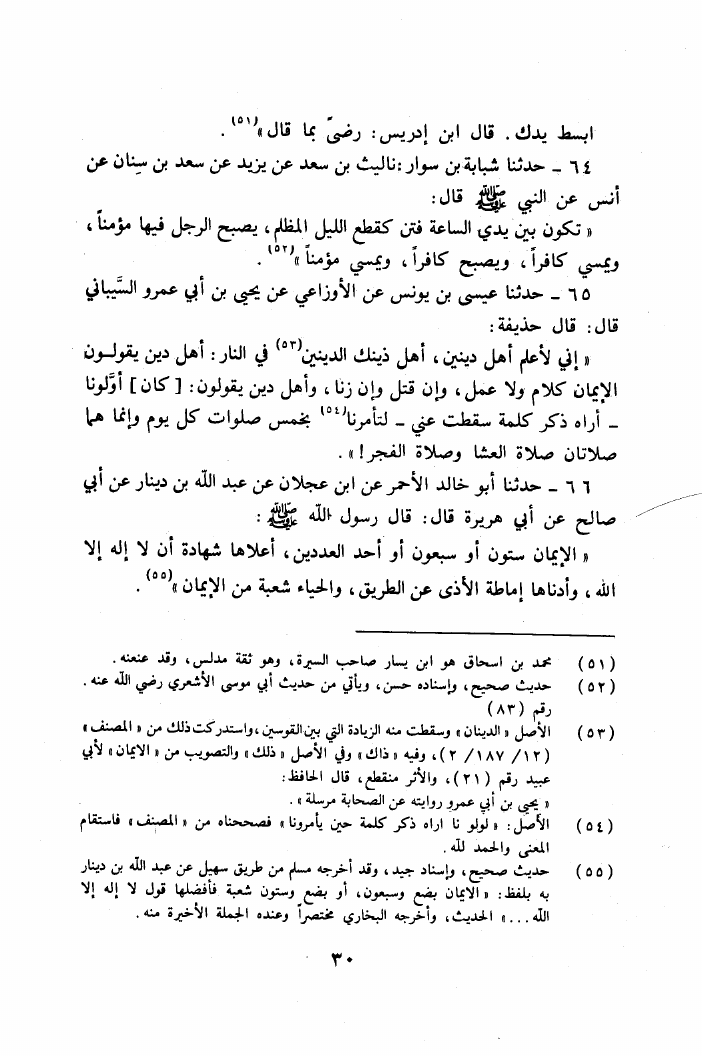 ابسط يدك. قال ابن إدريس: رضىً بما قال»(٥١).
٦٤ ـ حدثنا شبابة بن سوار: نا ليث بن سعد عن يزيد عن سعد بن سنان عن
أنس عن النبي ﷺ قال:
« تكون بين يدي الساعة فتن كقطع الليل المظلم، يصبح الرجل فيها مؤمناً،
ويمسي كافراً، ويصبح كافراً، ويمسي مؤمناً»(٥٢).
٦٥ ـ حدثنا عيسى بن يونس عن الأوزاعي عن يحيى بن أبي عمرو السَّيباني
قال: قال حذيفة:
« إني لأعلم أهل دينين، أهل ذينك الدينين(٥٣) في النار: أهل دين يقولون
الإيمان كلام ولا عمل، وإن قتل وإن زنا، وأهل دين يقولون: [كان] أوَّلونا
ـ أراه ذكر كلمة سقطت عني ـ لتأمرنا(٥٤) بخمس صلوات كل يوم وإنما هما
صلاتان صلاة العشا وصلاة الفجر!».
٦٦ ـ حدثنا أبو خالد الأحمر عن ابن عجلان عن عبد الله بن دينار عن أبي
صالح عن أبي هريرة قال: قال رسول الله ﷺ:
« الإيمان ستون أو سبعون أو أحد العددين، أعلاها شهادة أن لا إله إلا
الله، وأدناها إماطة الأذى عن الطريق، والحياء شعبة من الإيمان»(٥٥).
(٥١) محمد بن اسحاق هو ابن يسار صاحب السيرة، وهو ثقة مدلس، وقد عنعنه.
(٥٢) حديث صحيح، وإسناده حسن، ويأتي من حديث أبي موسى الأشعري رضي الله عنه.
رقم (٨٣)
(٥٣) الأصل «الدينان» وسقطت منه الزيادة التي بين القوسين، واستدركت ذلك من «المصنف»
(١٢/ ١٨٧/ ٢)، وفيه «ذاك» وفي الأصل «ذلك» والتصويب من «الايمان» لأبي
عبيد رقم (٢١)، والأثر منقطع، قال الحافظ:
« يحيى بن أبي عمرو روايته عن الصحابة مرسلة».
(٥٤) الأصل: «لولو نا اراه ذكر كلمة حين يأمرونا» فصححناه من «المصنف» فاستقام
المعنى والحمد لله.
(٥٥) حديث صحيح، وإسناد جيد، وقد أخرجه مسلم من طريق سهيل عن عبد الله بن دينار
به بلفظ: «الايمان بضع وسبعون، أو بضع وستون شعبة فأفضلها قول لا إله إلا
الله...» الحديث، وأخرجه البخاري مختصراً وعنده الجملة الأخيرة منه.
٣٠